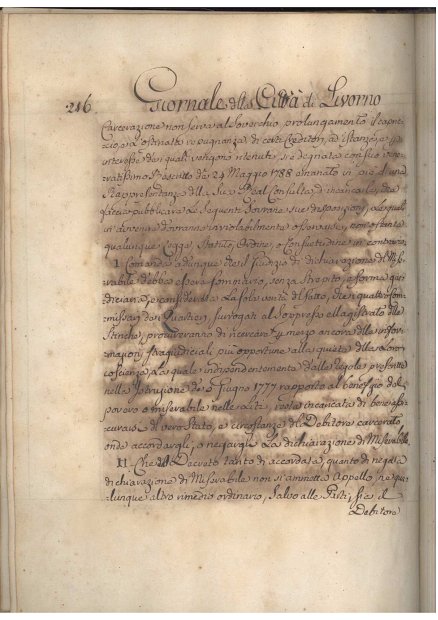 216 Giornale della Città di Livorno
Carcerazione non serva al soverchio prolungamento il capric-
cio, e a ostinate repugnanza di certi Creditori, ad istanza, e per
interesse dei quali vengono ritenuti si è degnata con suo vene-
ratissimo Rescritto de 24 Maggio 1788 emanato in piè di una
Rappresentanza della Sua Real Consulta d'incaricare, che
faccia pubblicare le seguenti Sovrane sue disposizioni, le quali
in avvenire dovranno inviolabilmente osservarsi, non ostante
qualunque Legge, Statuto, Ordine, o Consuetudine in contrario
I. Comanda adunque che il Giudizio di dichiarazione di Mise-
rabile debba essere sommario, senza strepito, e forma giu-
diciaria, e considerata la sola verità del fatto, che i quattro Com-
missari dei Quartieri, surrogati al Soppresso Magistrato delle
Stinche, procureranno di ricercare per mezzo ancora delle infor-
mazioni stragiudiciali più opportune alla quiete della loro
coscienza, la quale independentemente dalle Regole prescritte
nella Istruzione de' Giugno 1777 rapporto al benefizio del
povero o miserabile nelle Liti, resta incaricata di bene assi-
curarsi del vero Stato, e circostanze del Debitore carcerato,
onde accordargli, o negargli la dichiarazione di Miserabile
II. Che dal Decreto tanto di accordata, quanto di negata
dichiarazione di Miserabile non si ammetta Appello, ne qua-
lunque altro rimedio ordinario, salvo alle Parti, sia il
Debitore